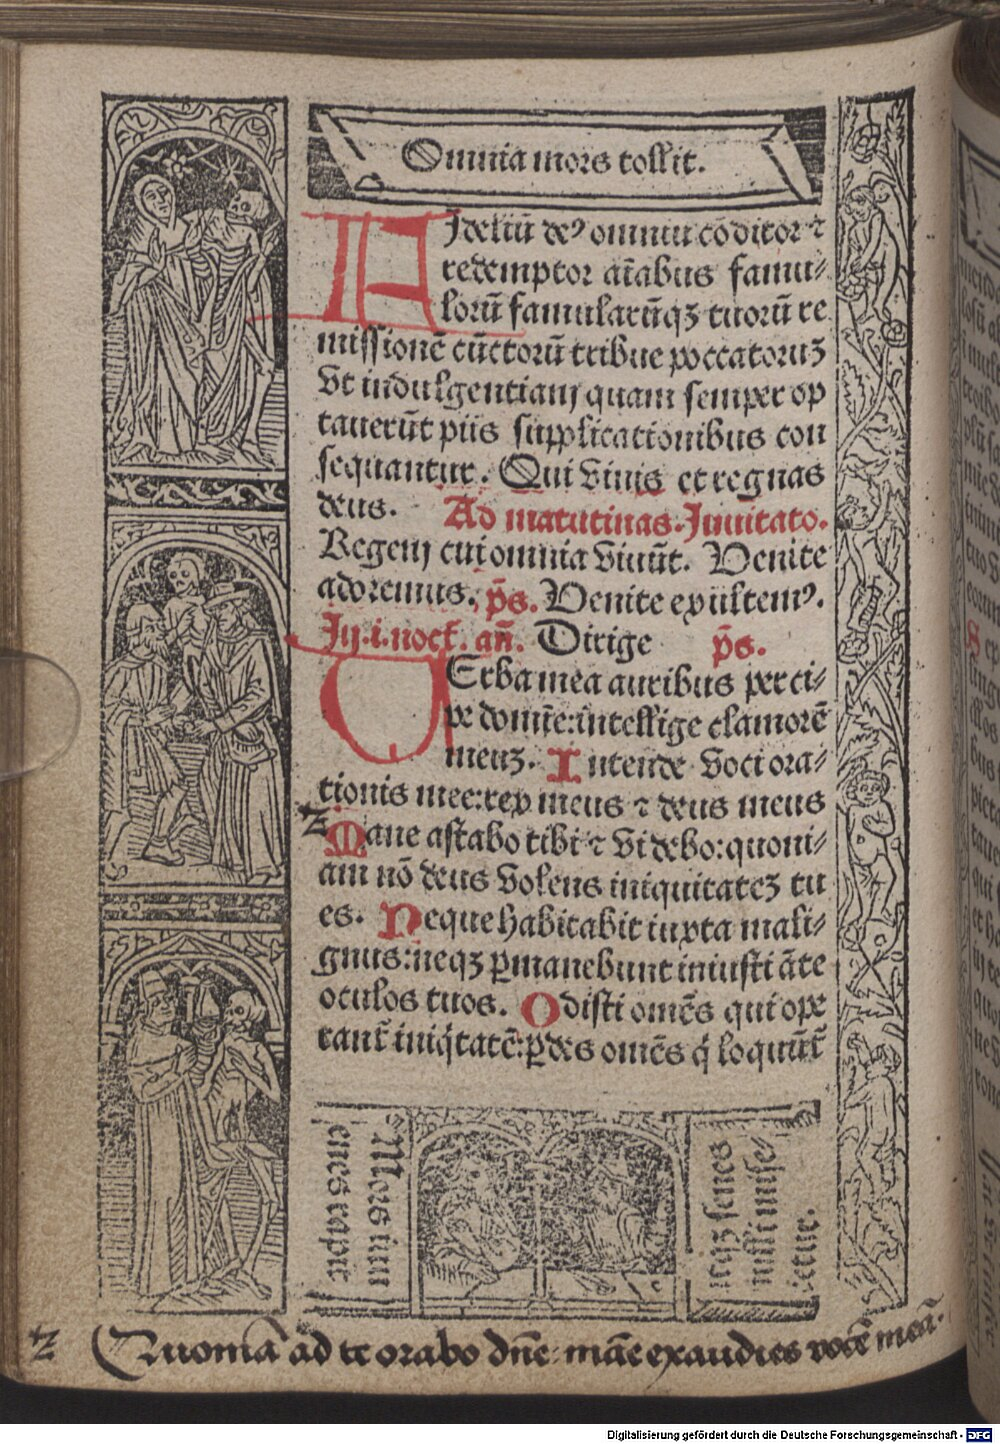 Omnia mors tollit.
FIdeliũ deꝰ omniũ cõditor ⁊
redemptor aĩabus famu⸗
lorũ famularũqꝫ tuorũ re
missionẽ cũctorũ tribue peccatoruꝫ
vt indulgentiam quam semper op
tauerũt piis supplicationibus con
sequantur. Qui viuis et regnas
deus. Ad matutinas. Inuitato.
Regem cui omnia viuũt. Venite
adoremus. p̃s. Venite exultemꝰ.
In .i. noct. añ. Dirige p̃s.
VErba mea auribus perci⸗
pe domĩe: intellige clamorẽ
meuꝫ. Intende voci ora⸗
tionis mee: rex meus ⁊ deus meus
Mane astabo tibi ⁊ videbo: quoni⸗
am nõ deus volens iniquitateꝫ tu
es. Neque habitabit iuxta mali⸗
gnus: neqꝫ ꝑmanebunt iniusti ãte
oculos tuos. Odisti omẽs qui ope
rant̃ iniq̃tatẽ: ꝑdes omẽs q̃ loquũt̃
Mors iuu
enes rapit
senes
nulli mise⸗
retur.
Quoniã ad te orabo dñe: mãe exaudies vocẽ meã.
Digitalisierung gefördert durch die Deutsche Forschungsgemeinschaft - DFG